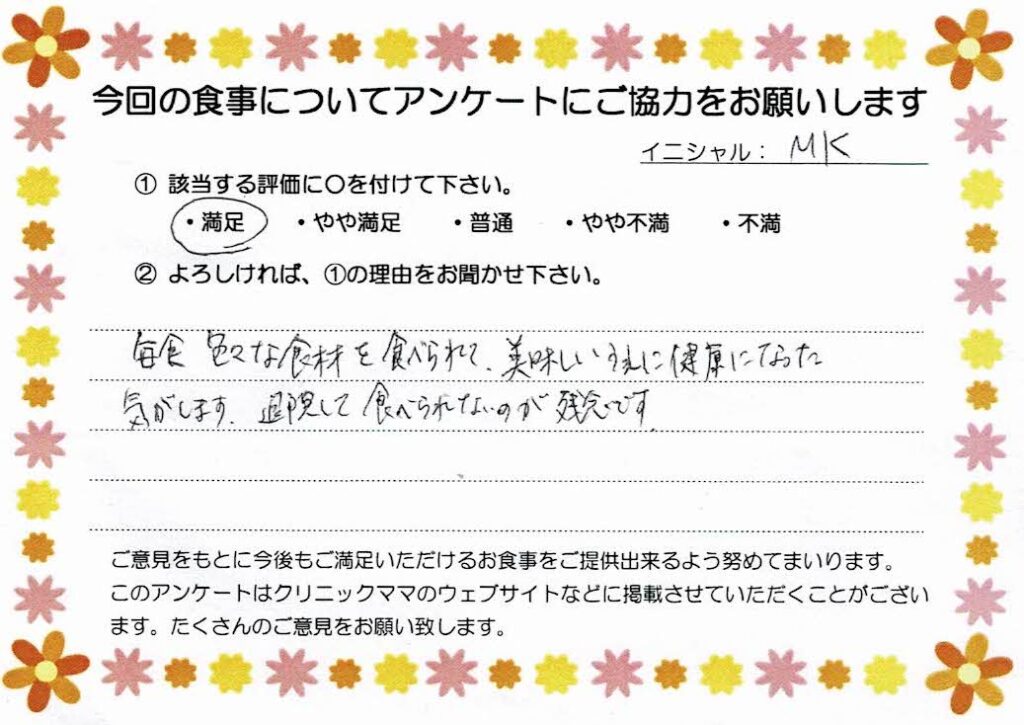 今回の食事についてアンケートにご協力をお願いします
イニシャル： MK
① 該当する評価に〇を付けて下さい。
・満足 ・やや満足 ・普通 ・やや不満 ・不満
② よろしければ、①の理由をお聞かせ下さい。
毎食 色々な食材を食べられて、美味しいうえに健康になった
気がします。退院して食べられないのが残念です。
ご意見をもとに今後もご満足いただけるお食事をご提供出来るよう努めてまいります。
このアンケートはクリニックママのウェブサイトなどに掲載させていただくことがござい
ます。たくさんのご意見をお願い致します。